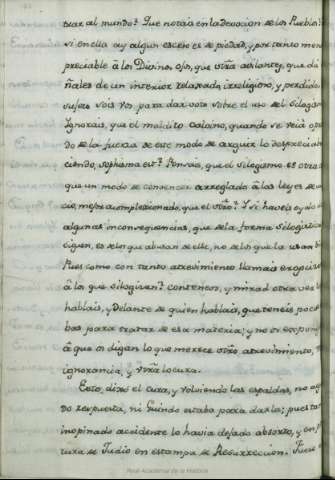 ticar al mundo? Que notais en la devocion de los Pueblos?
si en ella ay algun exceso es de piedad, y por tanto mas
preciable â los Divinos ojos, que vŕa adilantez, que dà se-
ñales de un interior relaxado, irreligioso, y perdido.
sujeto sois vos para dar voto sobre el uso del Silogismo
Ignorais, que el maldito Calvino, quando se veía opri
do de la fuerza de este modo de arguir lo despreciaba di
ciendo, sophisma est? Pensais, que el Silogismo es otra
que un modo de convencer arreglado â las leyes de
cio, mejor acomplexionado, que el vŕo? Y si haveis oydo
algunas inconsequiencias, que de la forma Silogistica
siguen, es de los que abusan de ella, no de los que la usan bi
Pues como con tanto atrevimiento llamais ergoizar
â los que silogizan? conteneos, y mirad otra vez lo
hablais, y delante de quien hablais, que teneis pocas
bas para tratar de esa materia; y no os expong
â que os digan lo que merece vŕo atrevimiento,
ignorancia, y vŕa locura.
Esto, dixo el Cura, y volviendo las espaldas, no ag
do respuesta, ni Guindo estaba para darla; pues tan
inopinado accidente lo havia dejado absorto, y en p
tura de Judio en estampa de Resurreccion.
Real Academia de la Historia